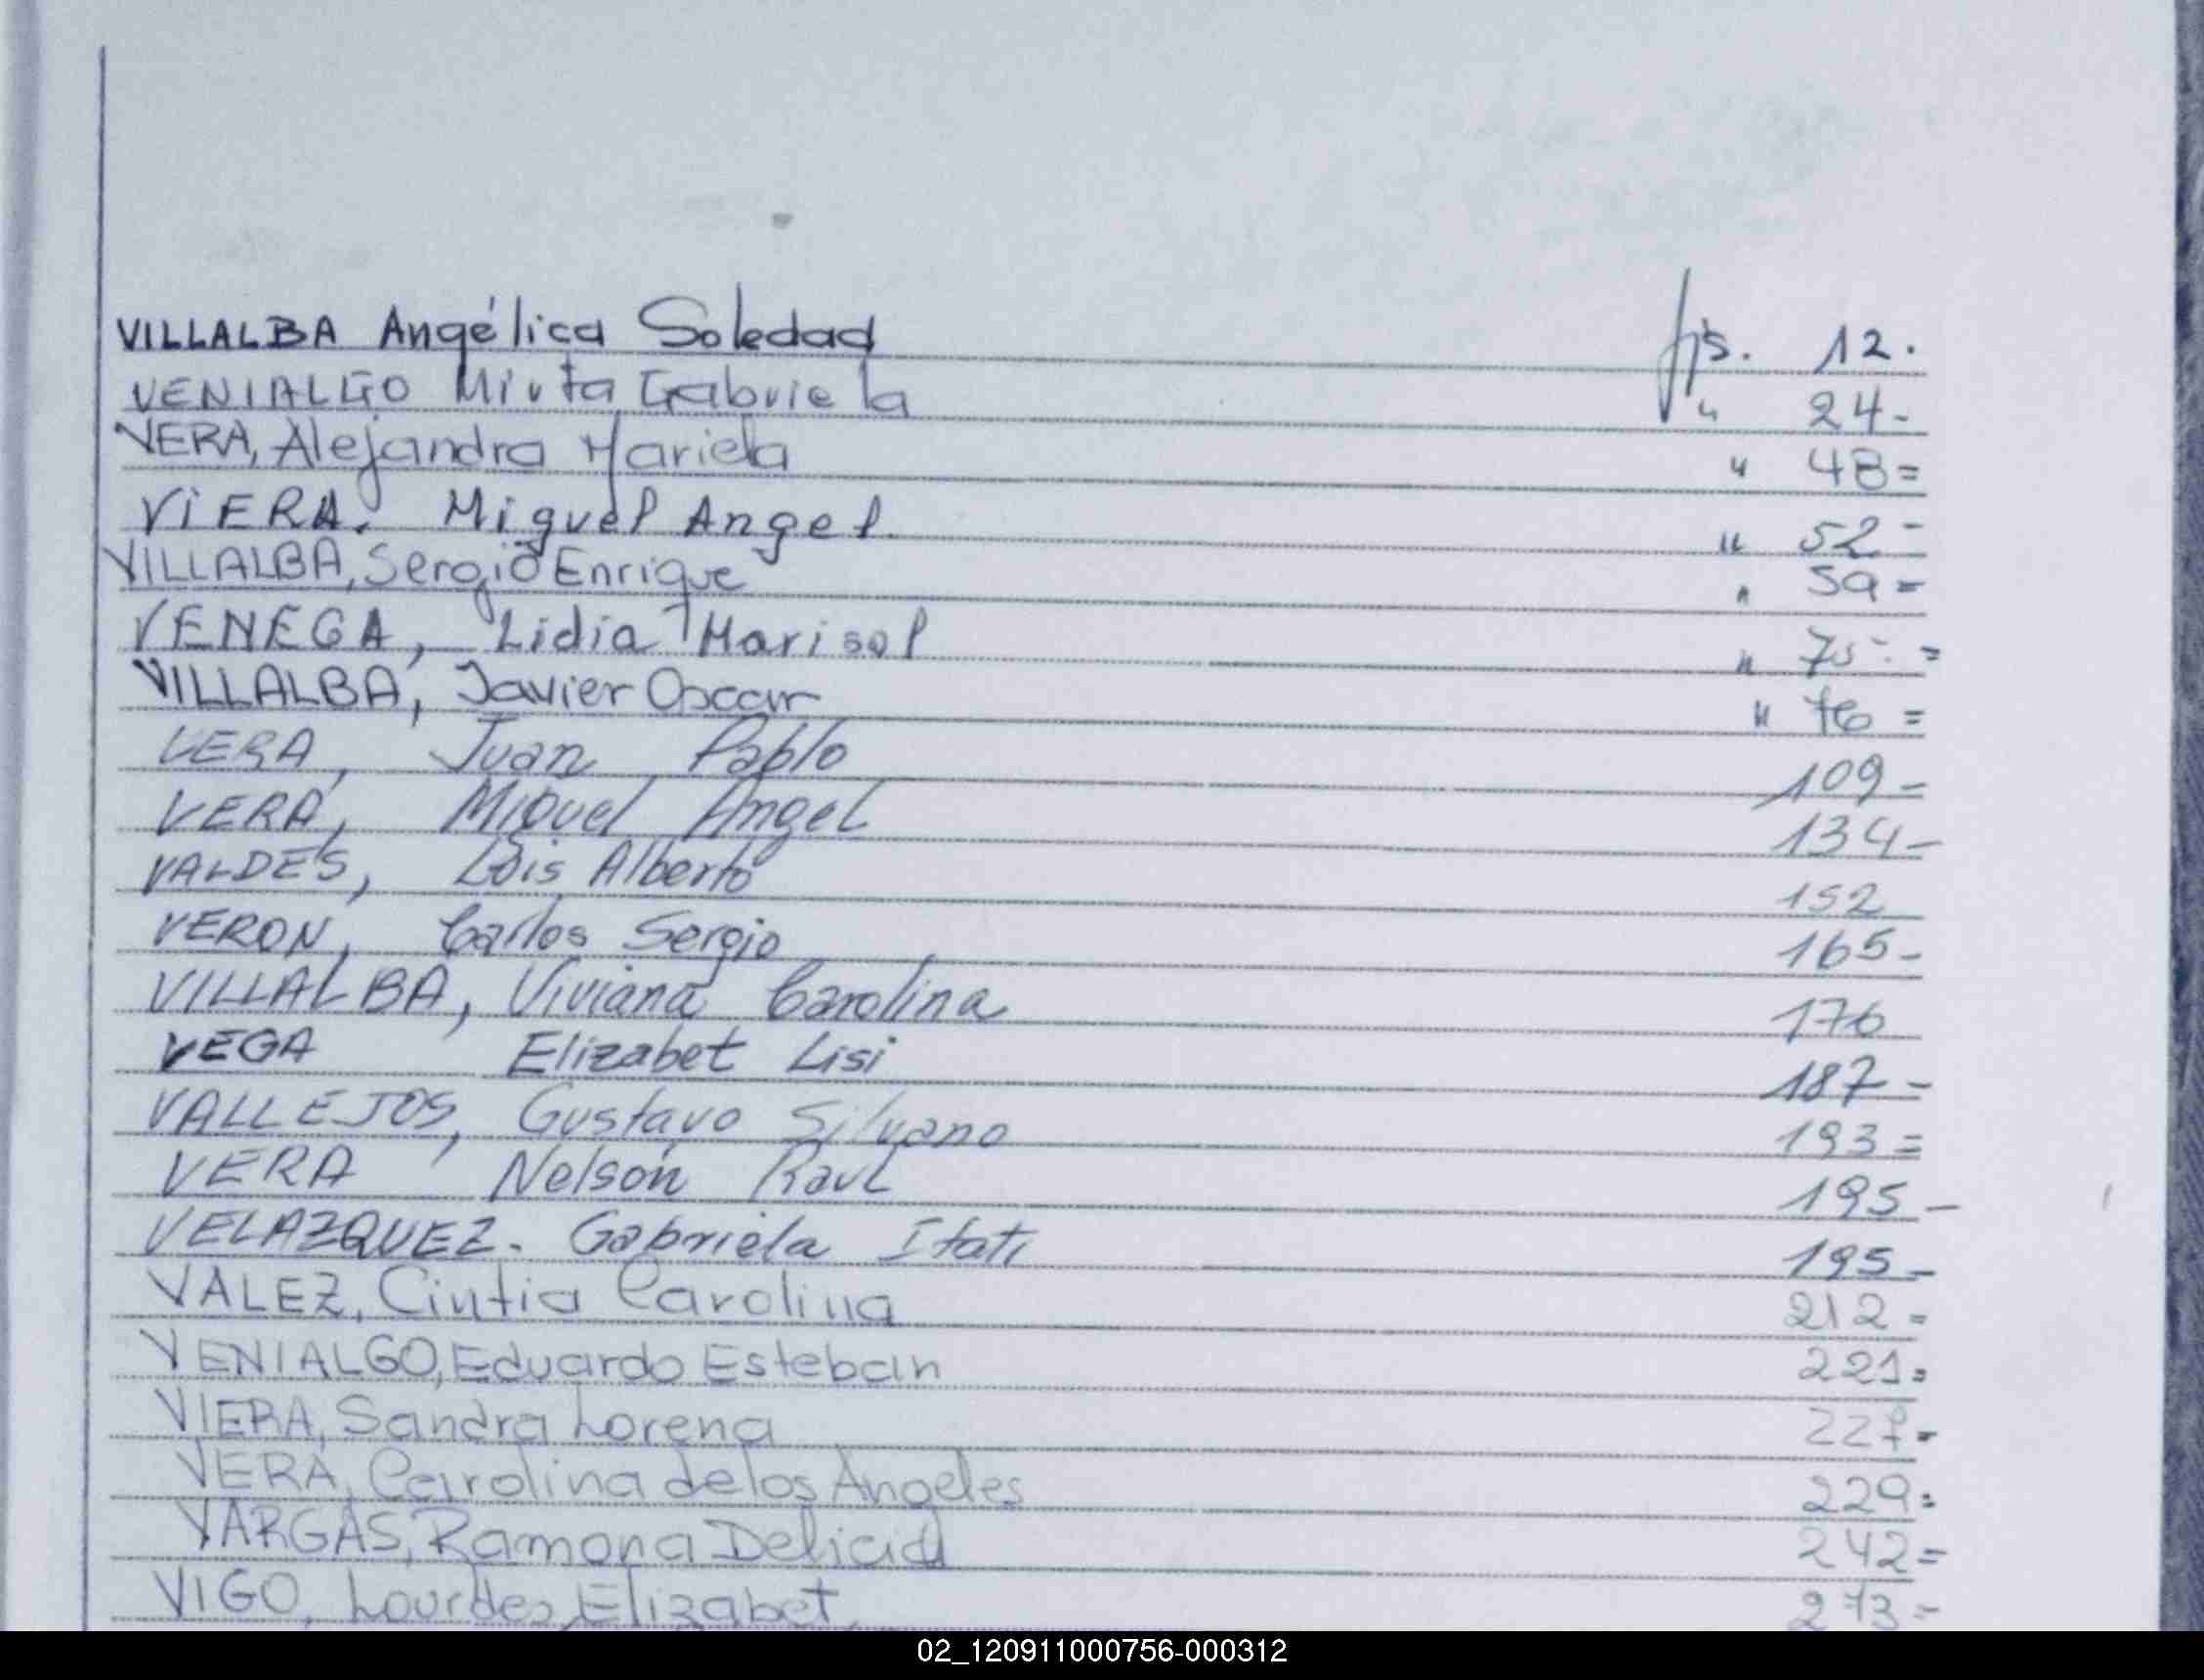 VILLALBA Angélica Soledad fjs. 12.
VENIALGO Mirta Gabriela " 24-
VERA, Alejandra Mariela " 48=
VIERA. Miguel Angel. " 52-
VILLALBA, Sergio Enrique " 59=
VENEGA, Lidia Marisol " 75-=
VILLALBA, Javier Oscar " 76=
VERA, Juan Pablo 109-
VERA, Miguel Angel 134-
VALDES, Luis Alberto 152
VERON, Carlos Sergio 165-
VILLALBA, Viviana Carolina 176
VEGA Elizabet Lisi 187-
VALLEJOS, Gustavo Silvano 193=
VERA Nelson Raul 195-
VELAZQUEZ. Gabriela Itati 195-
VALEZ, Cintia Carolina 212=
VENIALGO, Eduardo Esteban 221=
VIERA, Sandra Lorena 227-
VERA, Carolina de los Angeles 229=
VARGAS, Ramona Delicia 242=
VIGO, Lourdes Elizabet 273-
02_120911000756-000312